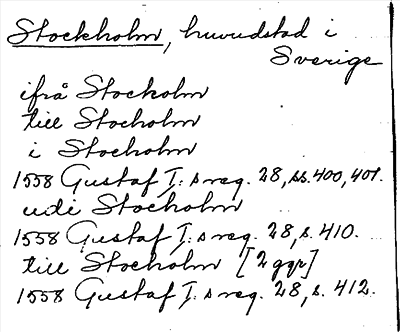 Stockholm, huvudstad i
Sverige
ifrå Stockolm
till Stocholm
i Stocholm
1558 Gustaf I:s reg. 28, ss. 400, 401.
uti Stocholm
1558 Gustaf I:s reg. 28, s. 410.
till Stocholm [2 ggr]
1558 Gustaf I:s reg. 28, s. 412.